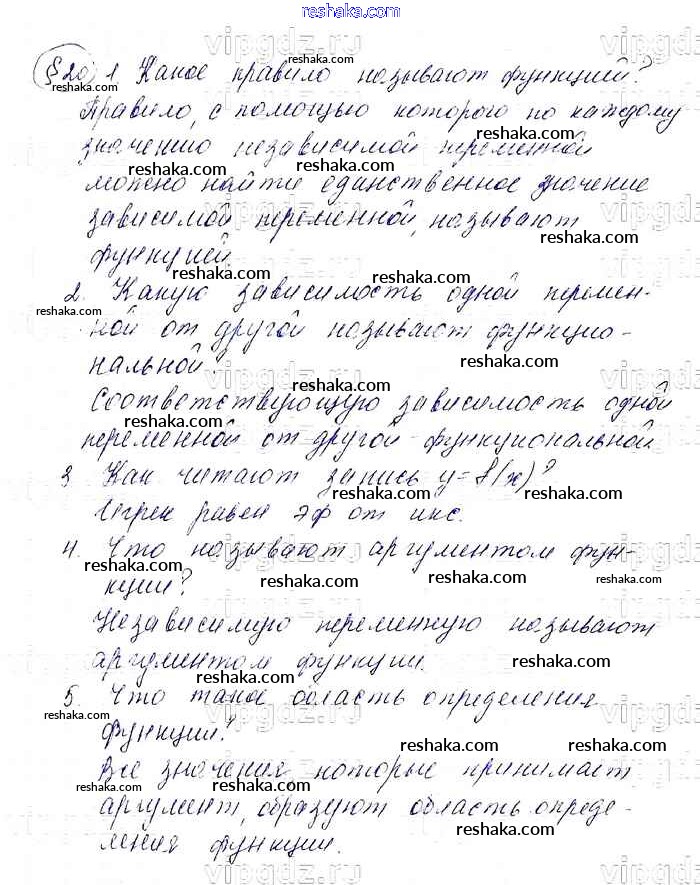 reshaka.com
§20, 1. Какое правило называют функцией?
Правило, с помощью которого по каждому
значению независимой переменной
можно найти единственное значение
зависимой переменной, называют
функцией.
2. Какую зависимость одной перемен-
ной от другой называют функцио-
нальной?
Соответствующую зависимость одной
переменной от другой - функциональной
3 Как читают запись y = f(x)?
Игрек равен эф от икс.
4. Что называют аргументом фун-
кции?
Независимую переменную называют
аргументом функции.
5. Что такое область определения
функции?
Все значения которые принимает
аргумент, образуют область опреде-
ления функции.